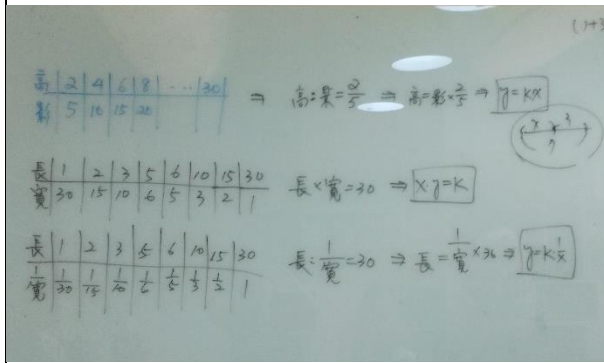 (1+3
高 | 2 | 4 | 6 | 8 | ... | 30 |
影 | 5 | 10 | 15 | 20
⇒ 高÷影=2/5 ⇒ 高=影×2/5 ⇒ y=kx
長 | 1 | 2 | 3 | 5 | 6 | 10 | 15 | 30
寬 | 30 | 15 | 10 | 6 | 5 | 3 | 2 | 1
長×寬=30 ⇒ x·y=k
長 | 1 | 2 | 3 | 5 | 6 | 10 | 15 | 30
1/寬 | 1/30 | 1/15 | 1/10 | 1/6 | 1/5 | 1/3 | 1/2 | 1
長÷1/寬=30 ⇒ 長=1/寬×30 ⇒ y=k·1/x